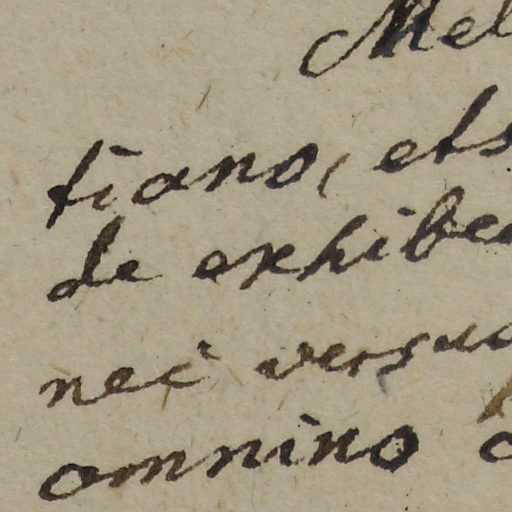 Mel
tiano, ets
de exhibe
nec versu
omnino